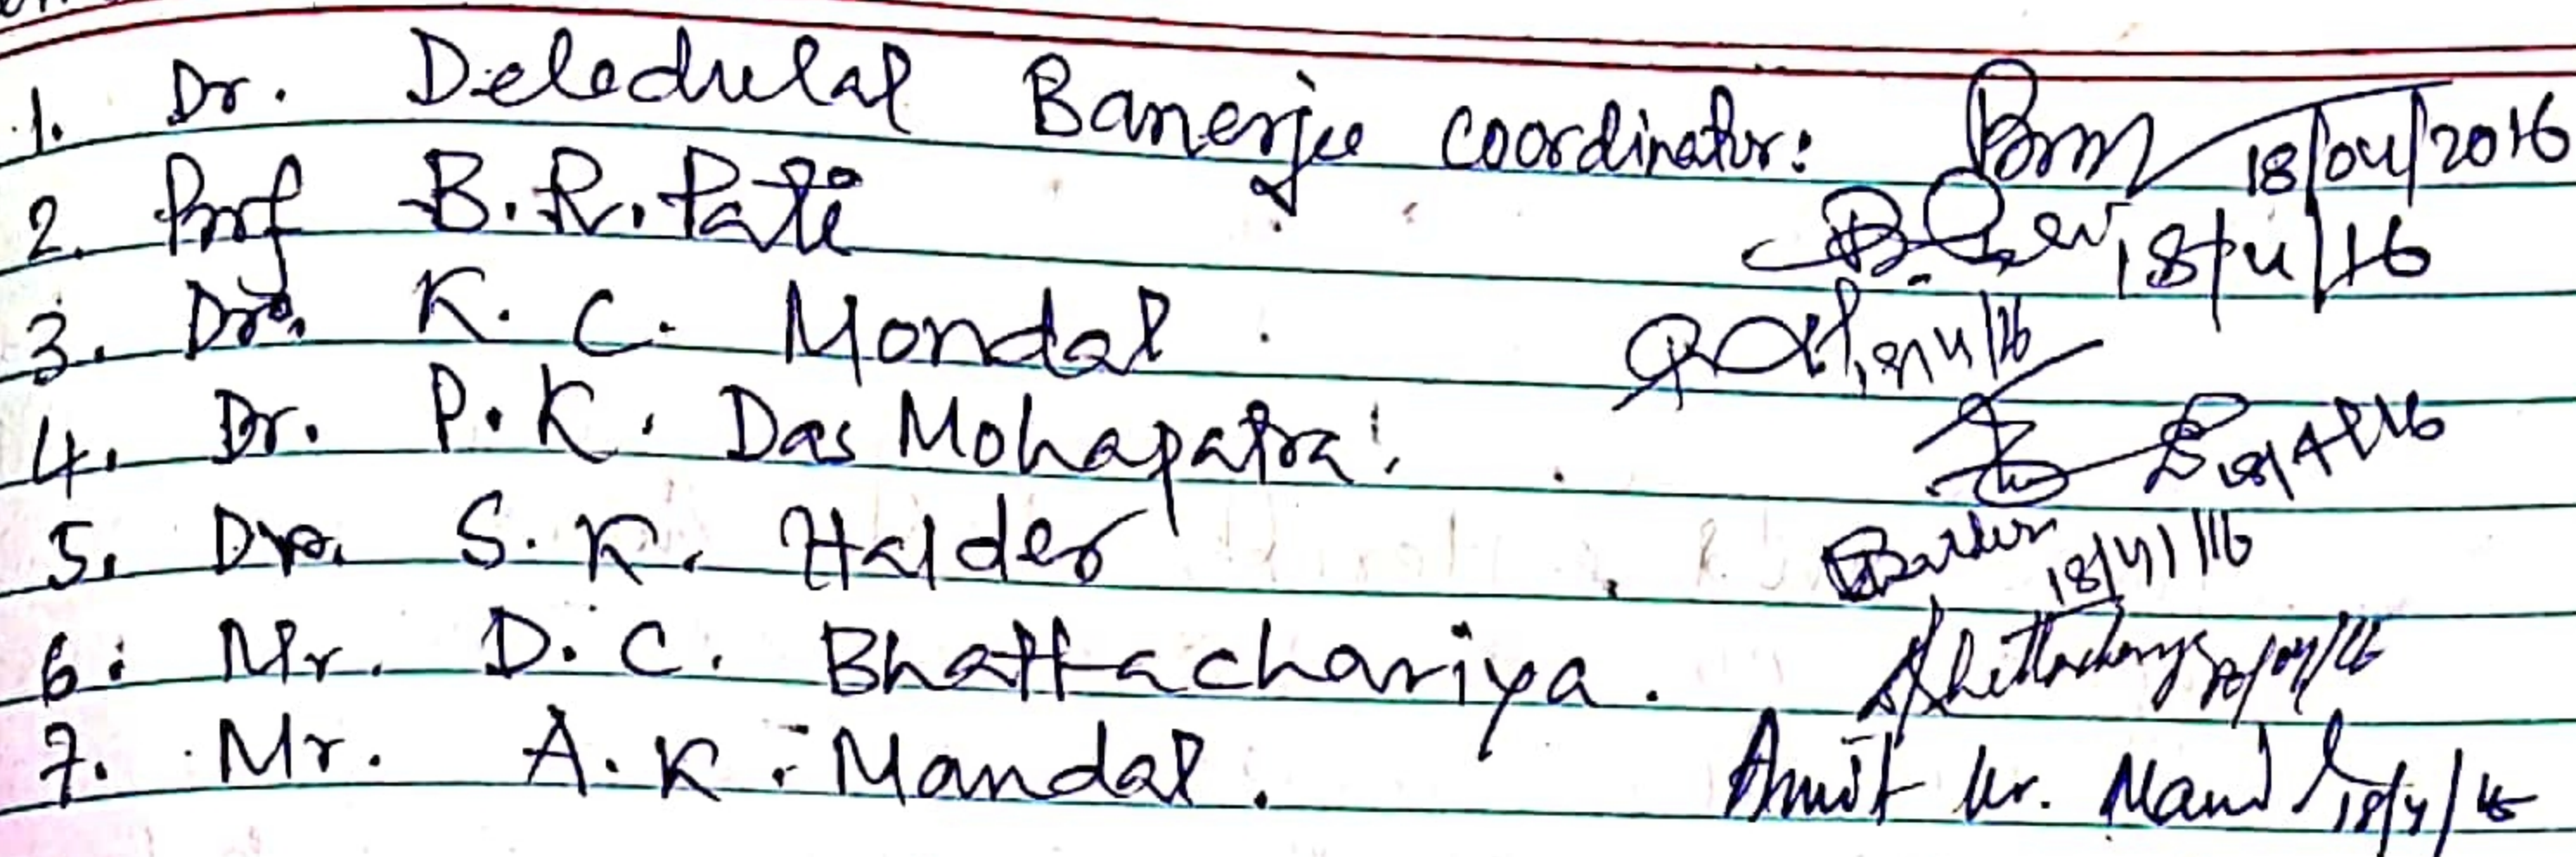 1. Dr. Deledulal Banerjee Coordinator: 18/04/2016
2. Prof B.R. Pati 18/4/16
3. Dr. K. C. Mondal 18/4/16
4. Dr. P.K. Das Mohapatra 18/4/16
5. Dr. S.K. Halder 18/4/16
6. Mr. D.C. Bhattachariya. 18/04/16
7. Mr. A.K. Mandal. Amit Kr. Mandal 18/4/16